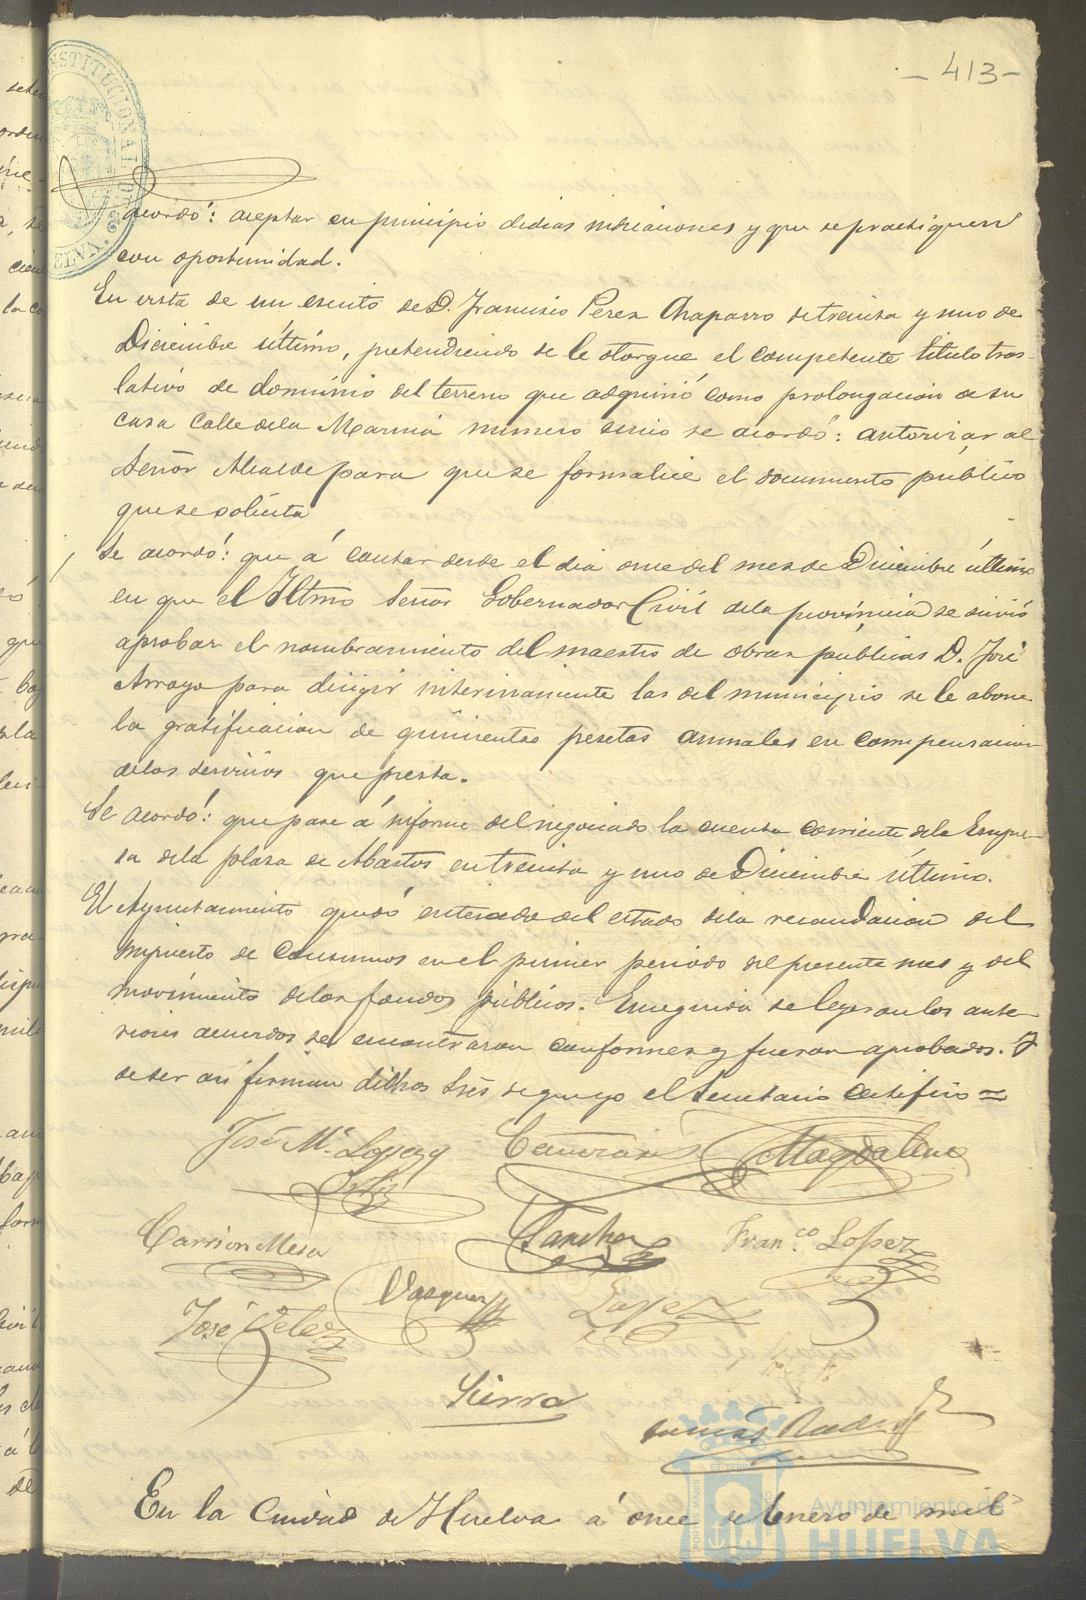 - 413 -
acordó: aceptar en principio dichas indicaciones y que se practiquen
con oportunidad.
En vista de un escrito de D. Francisco Perez Chaparro de treinta y uno de
Diciembre último, pretendiendo se le otorgue el competente título tras-
lativo de dominio del terreno que adquirió como prolongacion de su
casa Calle de la Marina número se acordó: autorizar al
Señor Alcalde para que se formalice el documento público
que se solicita
Se acordó: que á contar desde el dia once del mes de Diciembre último
en que el Iltmo Señor Gobernador Civil de la provincia se sirvió
aprobar el nombramiento del maestro de obras públicas D. José
Arroyo para dirigir interinamente las del municipio se le abone
la gratificacion de quinientas pesetas anuales en compensacion
de los servicios que presta.
Se acordó: que pase á informe del negociado la cuenta corriente de la Empre-
sa de la plaza de Abastos en treinta y uno de Diciembre último.
El Ayuntamiento quedó enterado del estado de la recaudacion del
impuesto de Consumos en el primer periodo del presente mes y del
movimiento de los fondos públicos. Enseguida se leyeron los ante-
riores acuerdos se encontraron conformes y fueron aprobados. Y
de ser asi firman dichos Sres de que yo el Secretario certifico =
José Mª Lopez y Magdalena
Ortiz
Carrion Mesa Sanchez Franco Lopez
Vazquez
José Velez Lopez
Sierra
Tomás
En la Ciudad de Huelva á once de Enero de mil
Ayuntamiento de
HUELVA